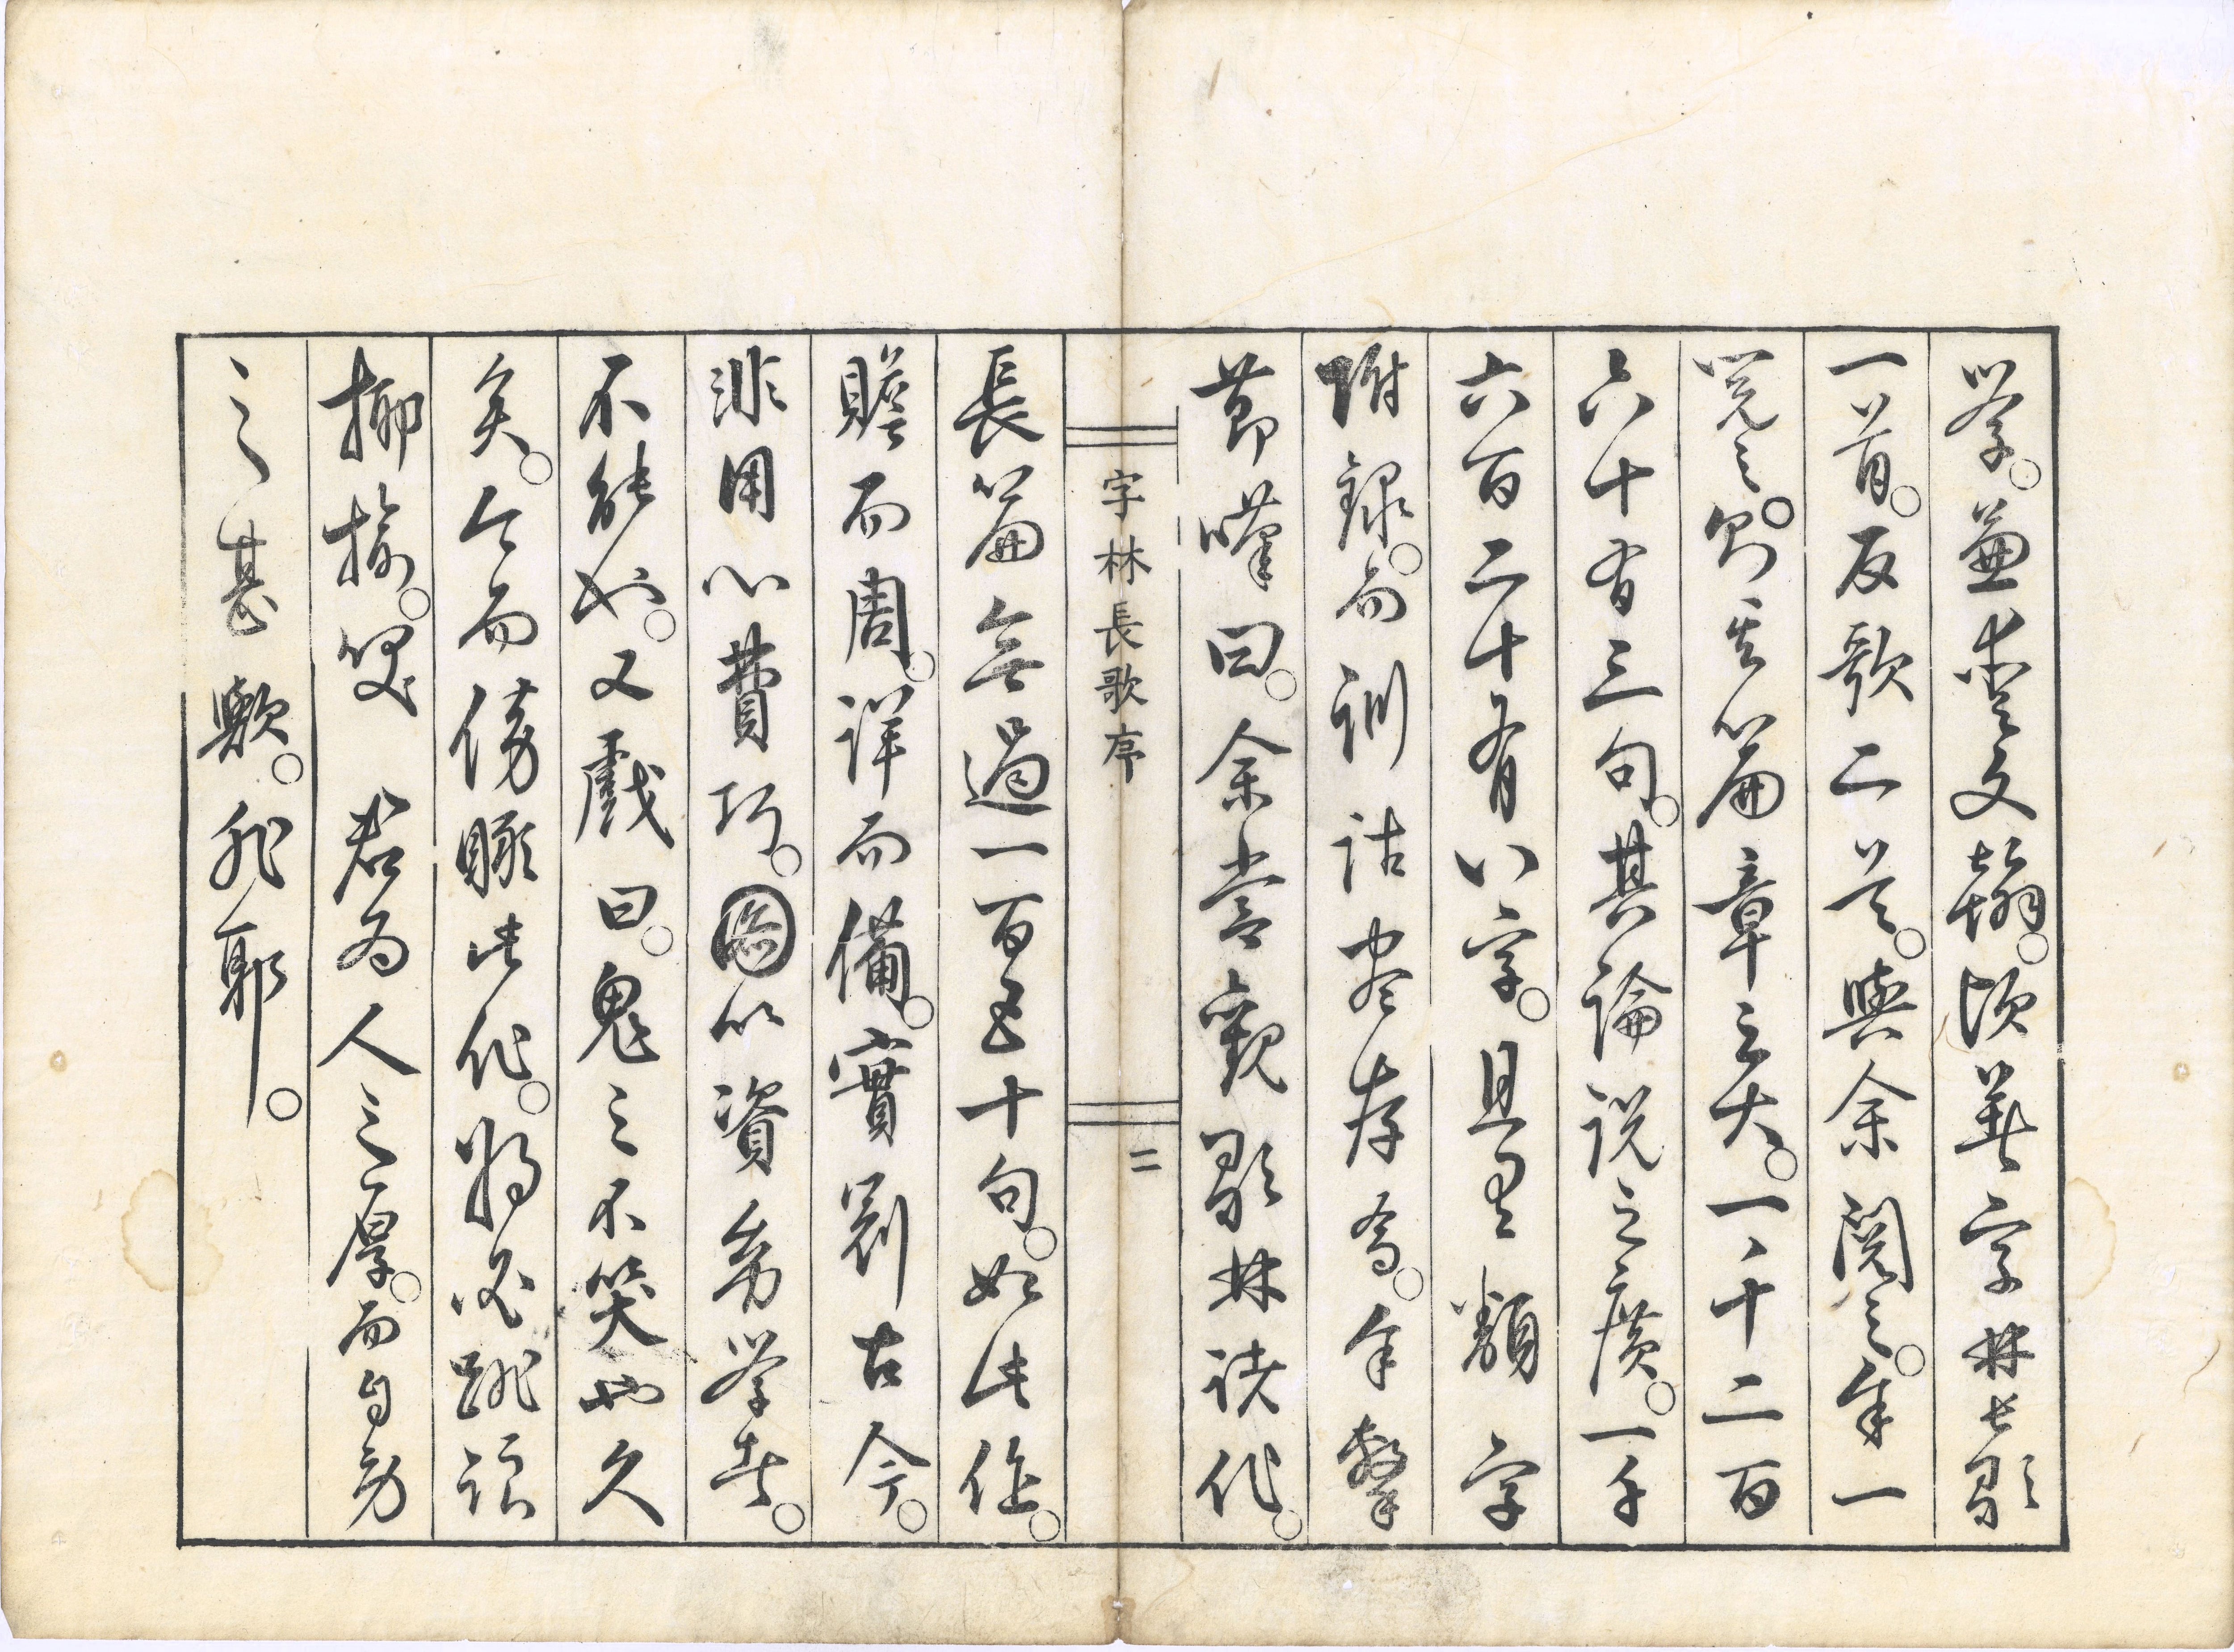 学。兼秀文翰。頃著字林長歌
一首。反歌二首。與余閲之。余一
覧之。則其篇章之大。一千二百
六十有三句。其論説之廣。一千
六百二十有八字。且至類字
附録。而訓詁尽存焉。余擊
節嘆曰。余嘗觀歌林諸作。
字林長歌序
二
長篇無過一百五十句。如此作。
贍而周。詳而備。實罕古今。
非用心費巧。図以資幼学者。
不能也。又戲曰。鬼之不笑也久
矣。今而傍瞰此作。将必跳踉
揶揄。笑 君為人之厚。而自勞
之甚歟。非耶。